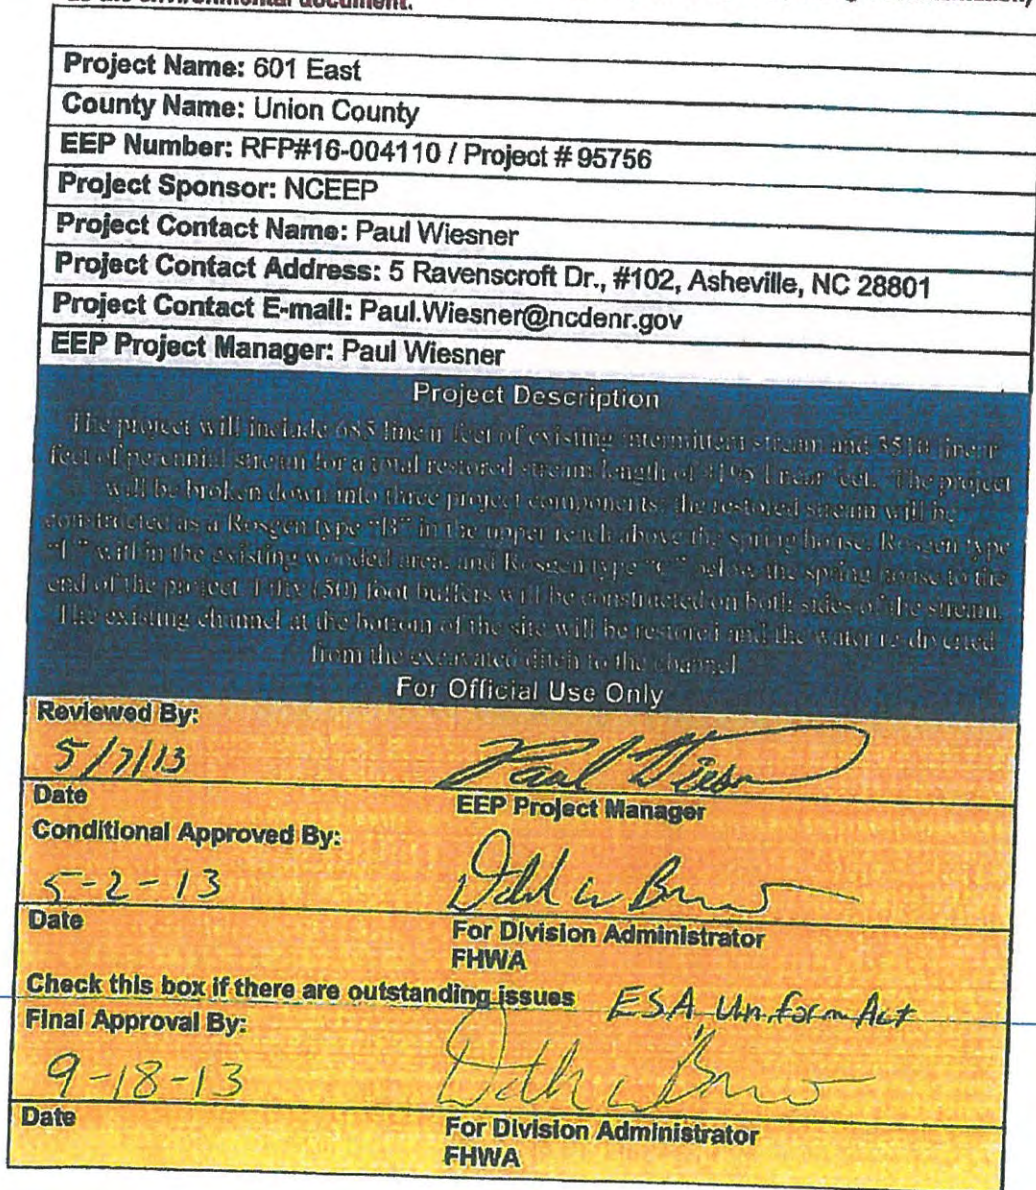 as the environmental document.
Project Name: 601 East
County Name: Union County
EEP Number: RFP#16-004110 / Project # 95756
Project Sponsor: NCEEP
Project Contact Name: Paul Wiesner
Project Contact Address: 5 Ravenscroft Dr., #102, Asheville, NC 28801
Project Contact E-mail: Paul.Wiesner@ncdenr.gov
EEP Project Manager: Paul Wiesner
Project Description
The project will include 685 linear feet of existing intermittent stream and 3510 linear
feet of perennial stream for a total restored stream length of linear feet. The project
will be broken down into three project components, the restored stream will be
constructed as a Rosgen type "B" in the upper reach above the spring house, Rosgen type
within the existing wooded area, and Rosgen type "C" below the spring house to the
end of the project. Fifty (50) foot buffers will be constructed on both sides of the stream.
The existing channel at the bottom of the site will be restored and the water re-diverted
from the excavated ditch to the channel
For Official Use Only
Reviewed By:
5/7/13 Paul Wiesn
Date EEP Project Manager
Conditional Approved By:
5-2-13
Date For Division Administrator
FHWA
Check this box if there are outstanding issues ESA, Uniform Act
Final Approval By:
9-18-13
Date For Division Administrator
FHWA